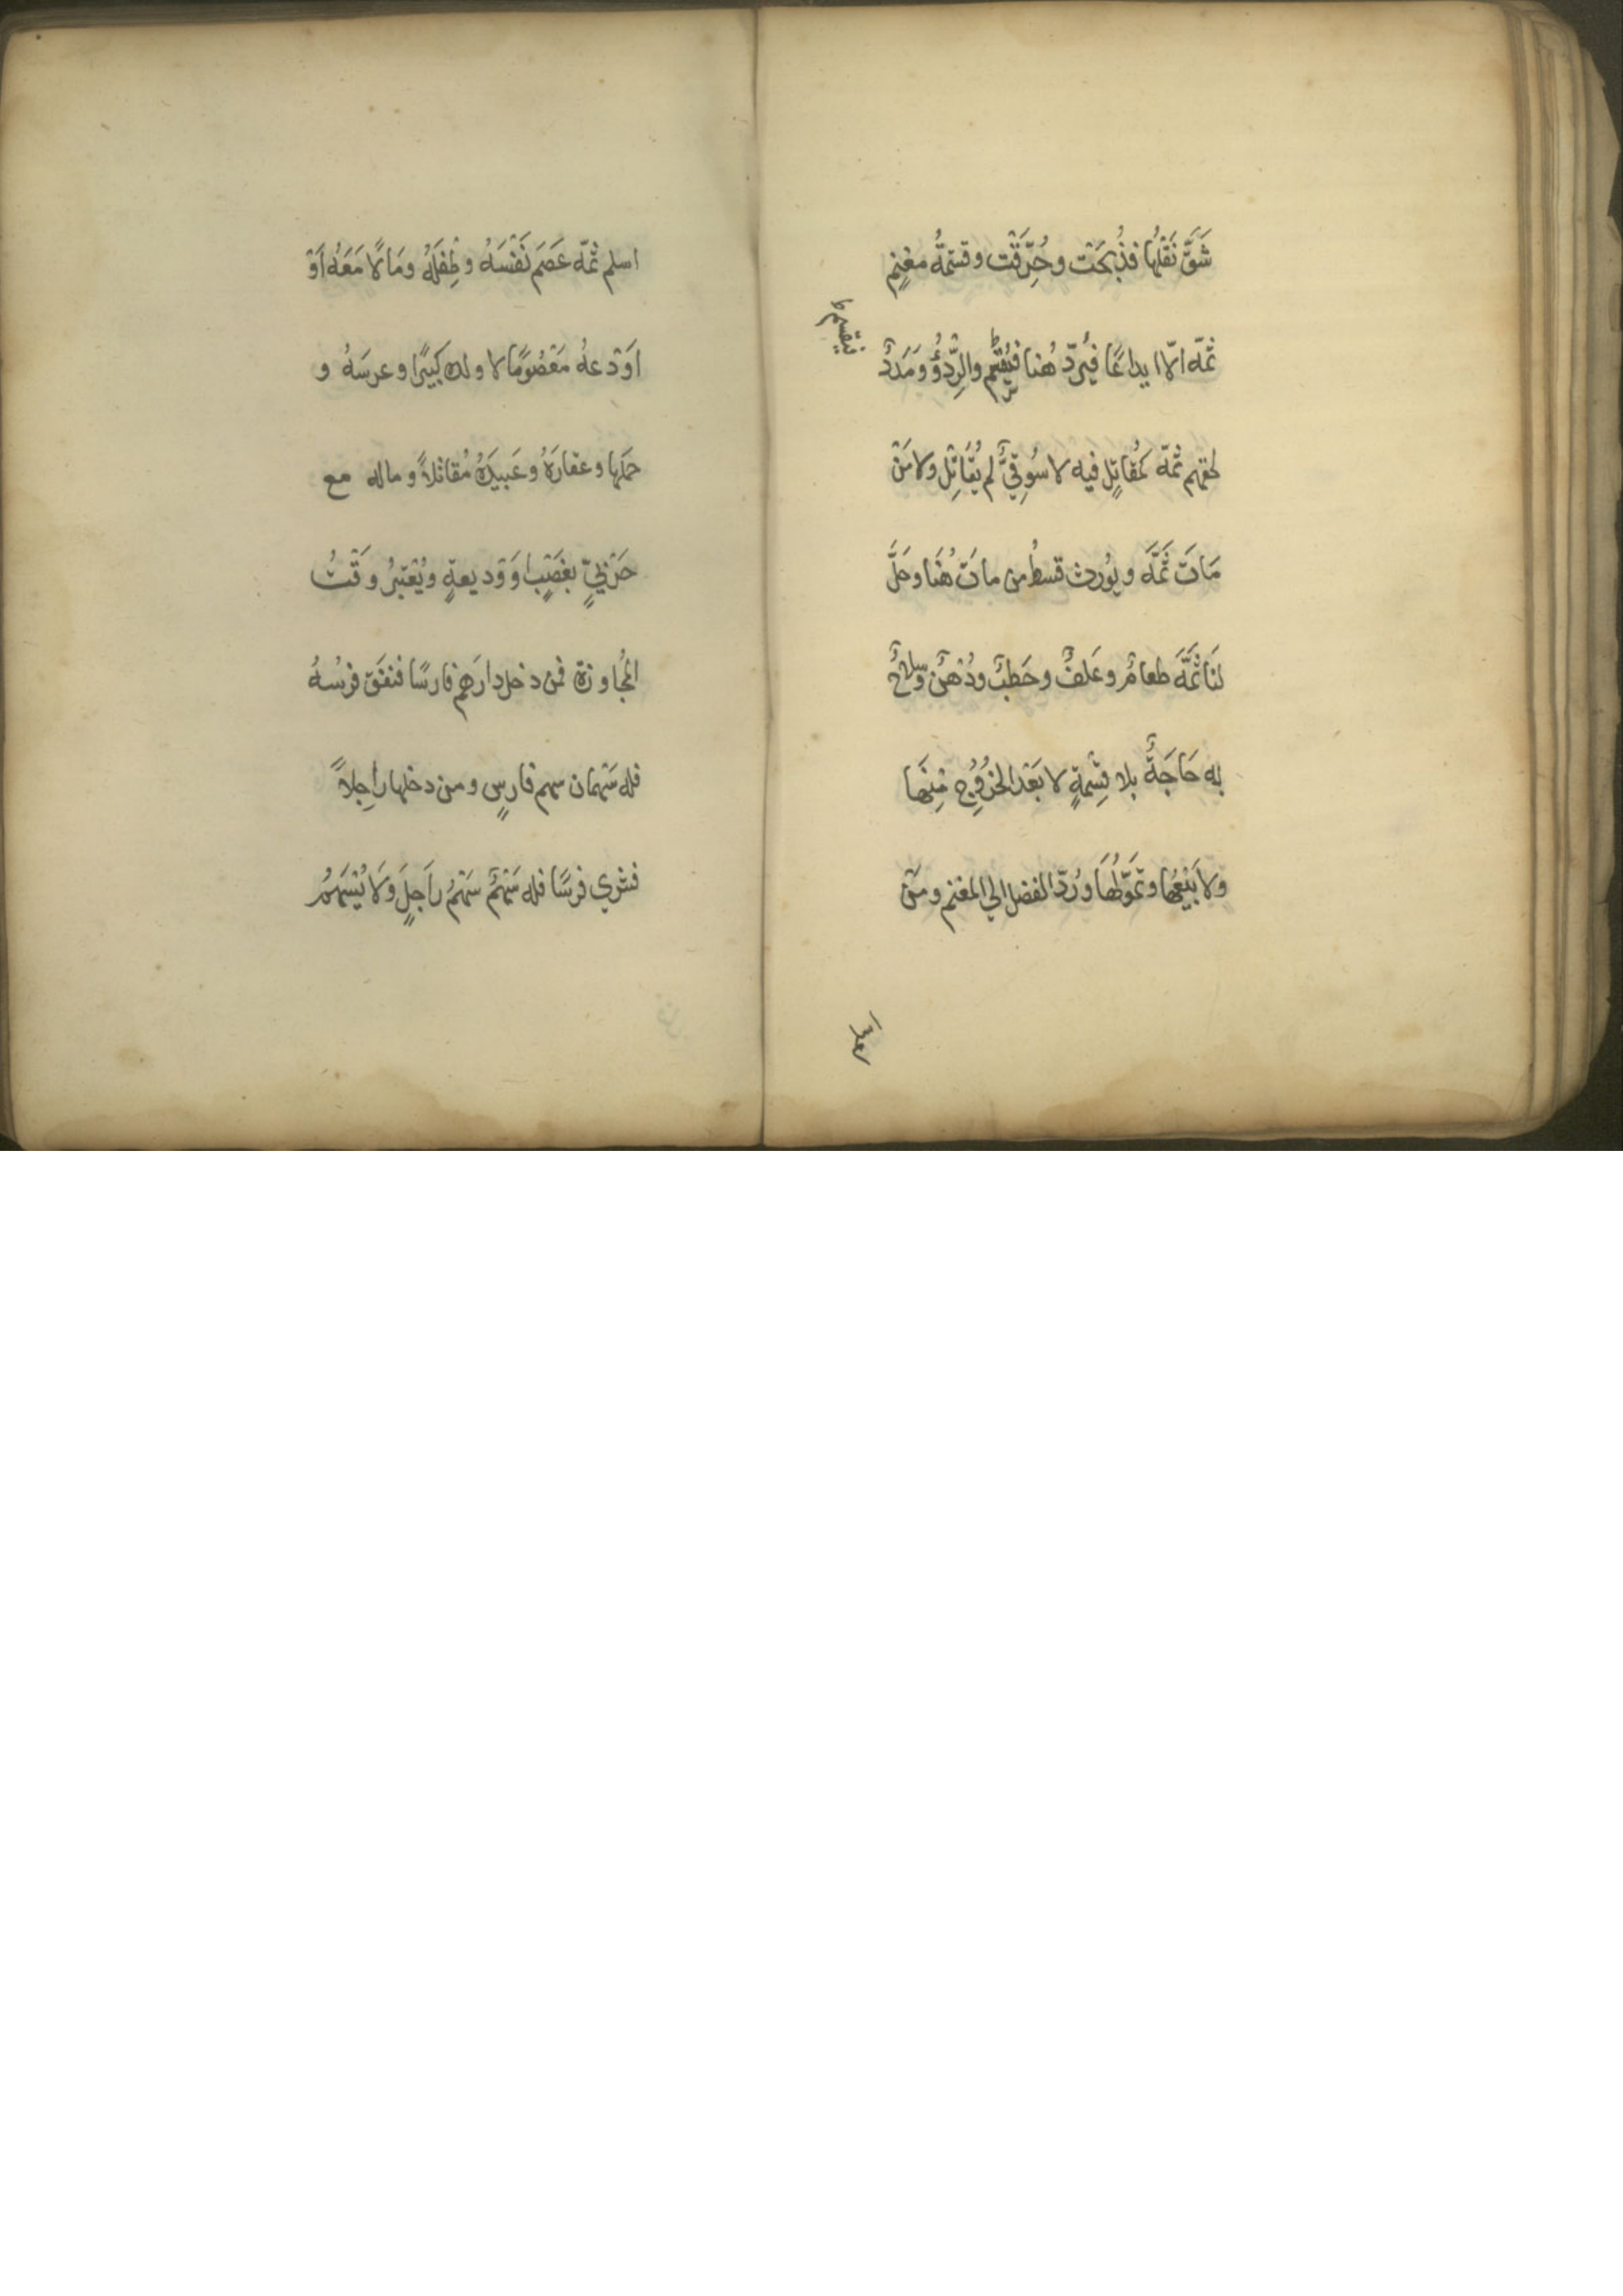 شَقَّ نَقْلُهَا فَذُبِحَتْ وحُرِّقَتْ وقسمةُ مغنمٍ
ثمّه الّا ايداعًا فيُردّ هُنا فيُقسم والرِّدْؤُ ومَدَدٌ
لحقهم ثمّه كمُقاتِلٍ فيه لا سُوقِيٌّ لم يُقَاتِلْ ولا مَنْ
مَاتَ ثَمَّهَ ويُورث قسطُ من ماتَ هُنَا وحَلَّ
لنَا ثَمَّهَ طعامٌ وعَلفٌ وحَطبٌ ودُهْنٌ وسلاحٌ
به حَاجَةٌ بلا قِسْمةٍ لا بَعْدَ الخُرُوجِ مِنْهَا
ولا بَيْعُهَا وتَمَوُّلُهَا ورُدّ الفضل الي المغنم ومَنْ
فيقسم
اسلم
اسلم ثمّه عَصَمَ نَفْسَهُ وطِفلَهُ ومَالًا مَعَهُ اَوْ
اَوْدعهُ مَعْصُومًا لا ولده كبيرًا وعرسَهُ و
حملها وعقارَهُ وعَبيدَهُ مُقاتلاً وماله مع
حَرْبيٍّ بغَصْبٍ اَوْ وديعةٍ ويُعْتبرُ وَقْتُ
المُجاوزة فمن دخل دارَهم فارسًا فنفَقَ فرسُهُ
فله سَهْمان سهم فارسٍ ومن دخلها راجِلاً
فشري فرسًا فله سَهْمٌ سَهْمُ رَاجلٍ وَلَا يُسْهَمُ